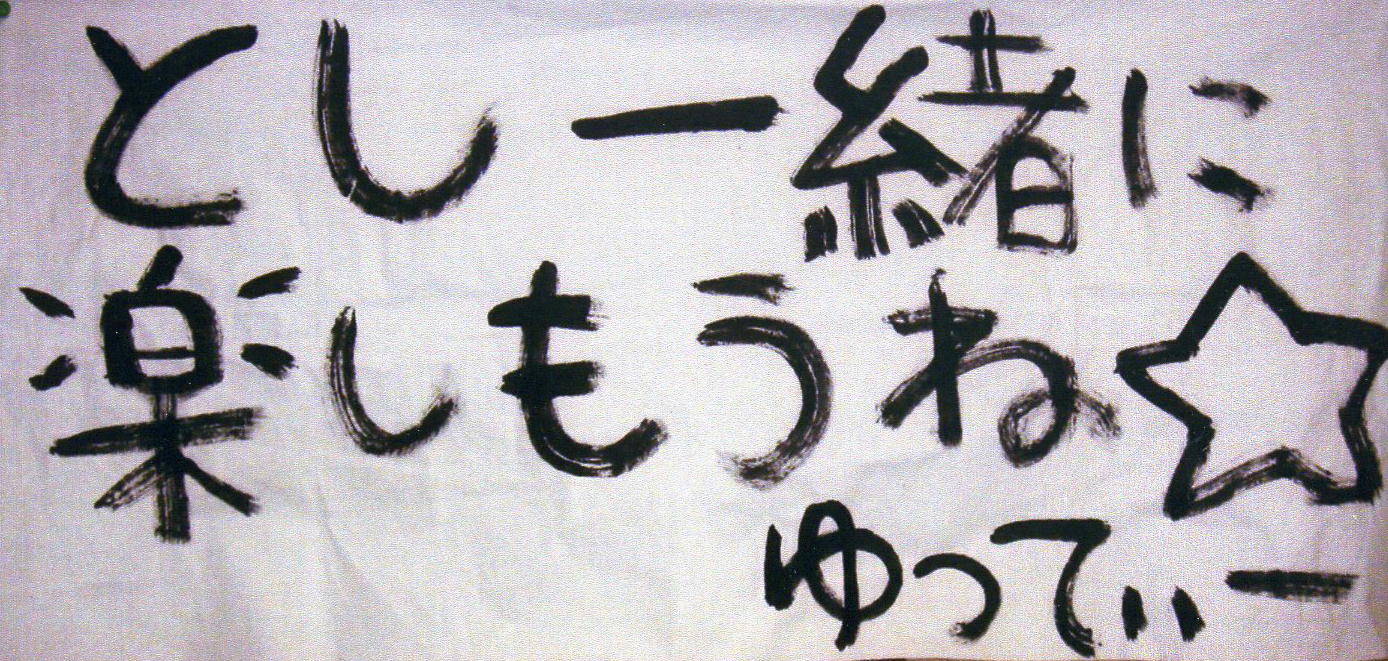 とし一緒に
楽しもうね☆
ゆってぃー